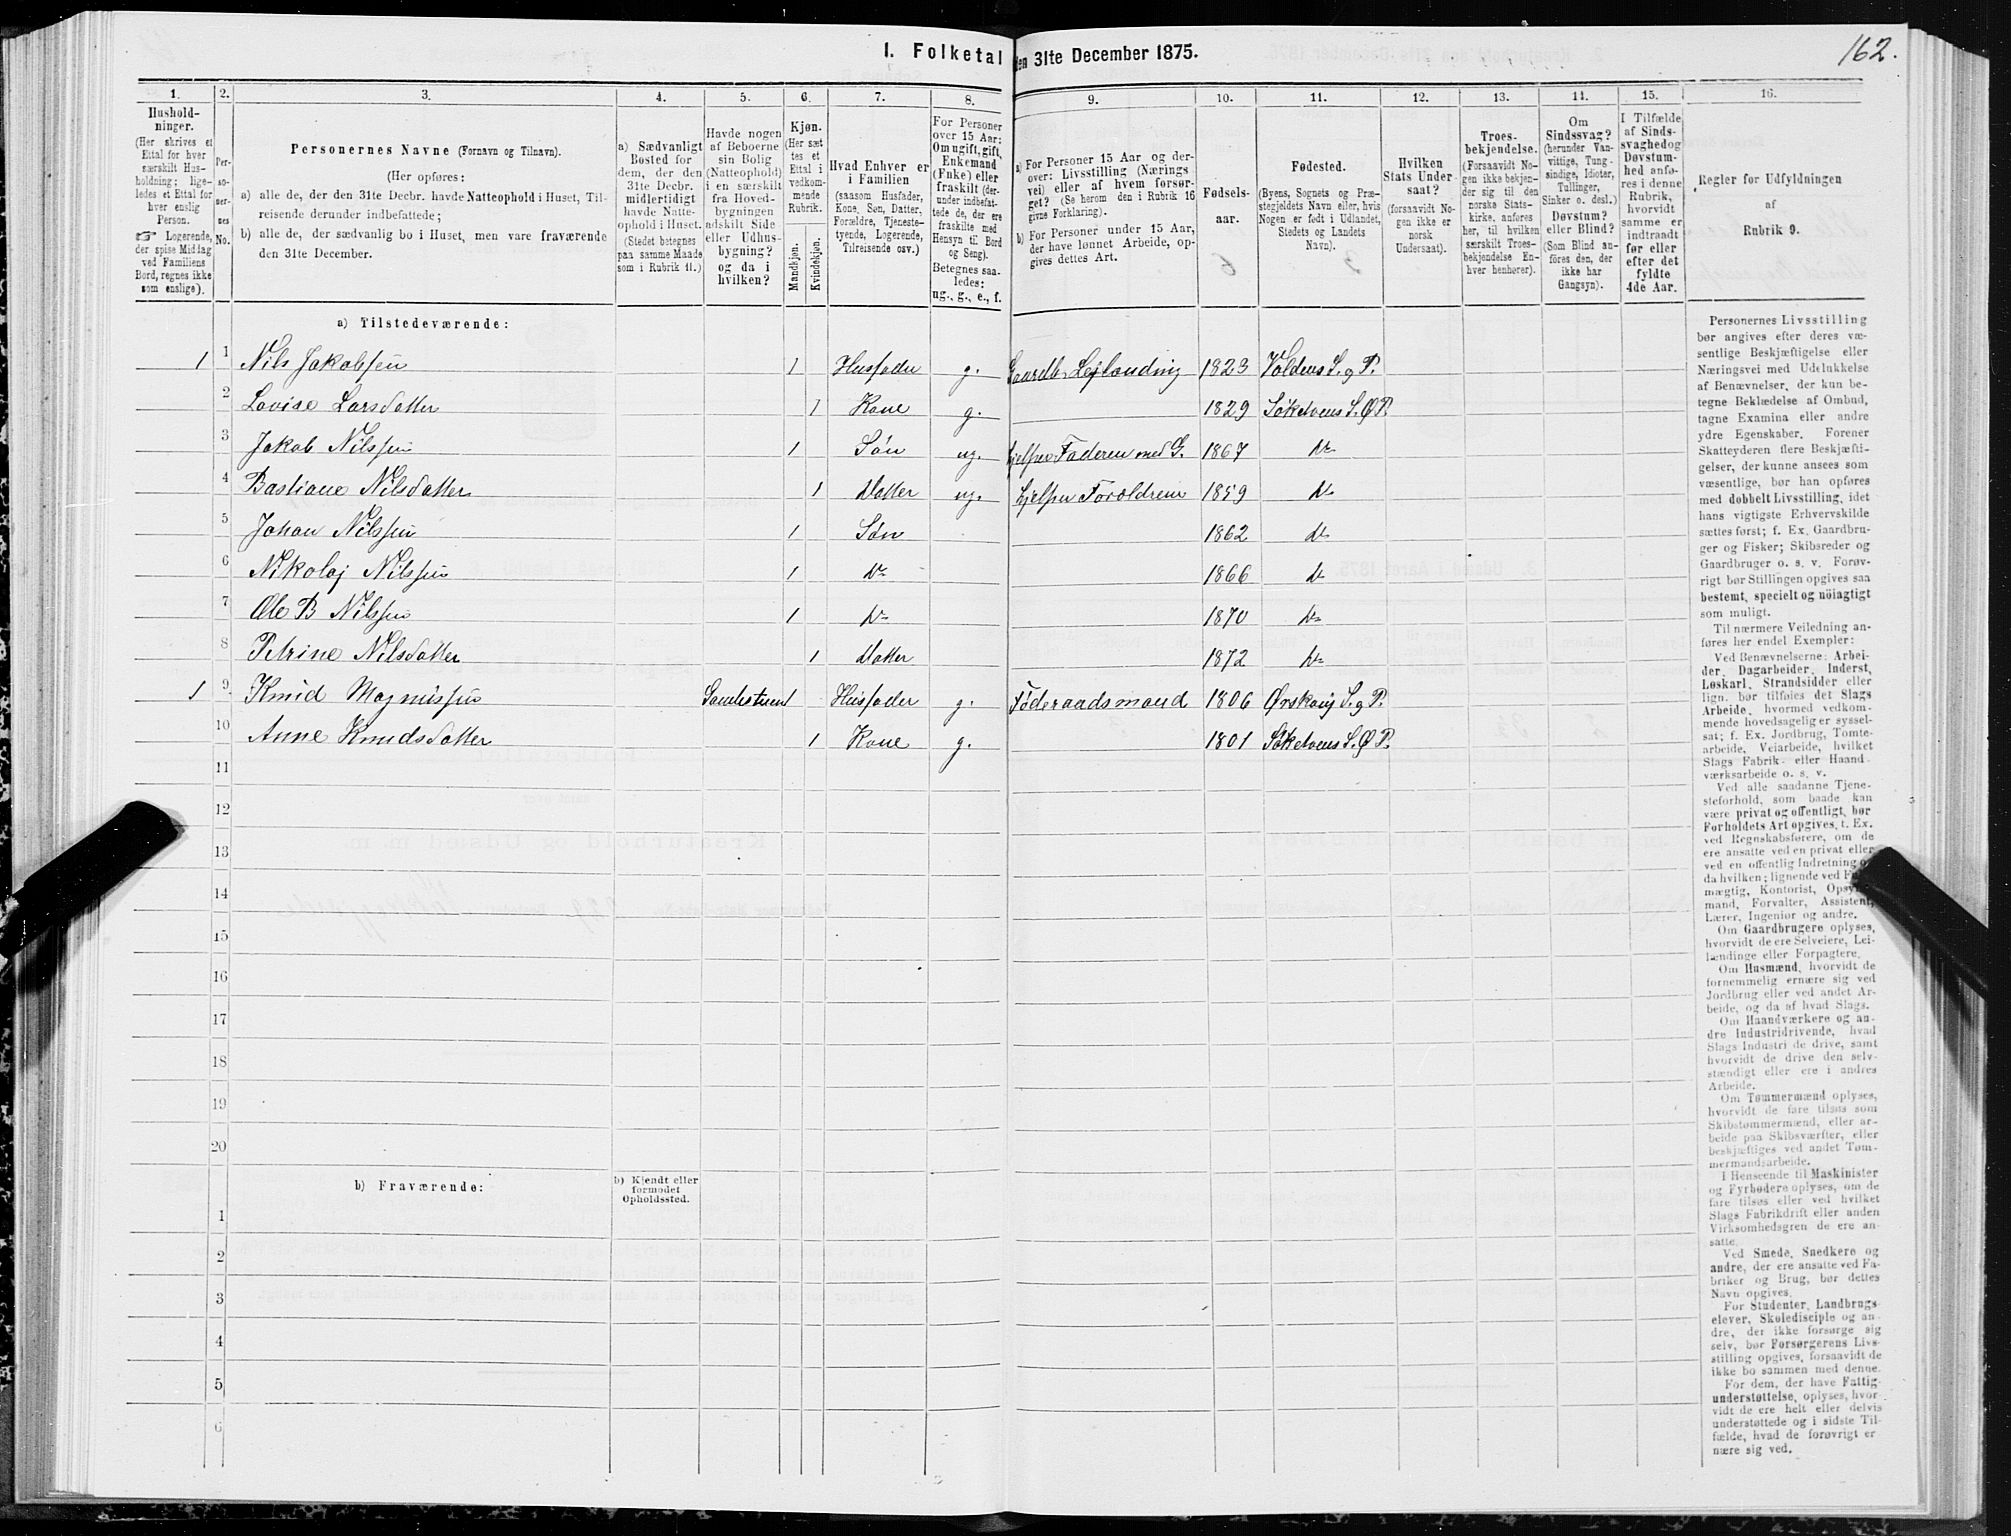 162.
1. Folketal den 31te December 1875.
1. 2. 3. 4. 5. 6. 7. 8. 9. 10. 11. 12. 13. 14. 15. 16.
Hushold-
ninger.
(Her skrives et
Ettal for hver
særskilt Hus-
holdning; lige-
ledes et Ettal for
hver enslig
Person.
☞ Logerende,
der spise Middag
ved Familiens
Bord, regnes ikke
som enslige).
Per-
so-
ner-
nes
No.
Personernes Navne (Fornavn og Tilnavn).
(Her opføres:
a) alle de, der den 31te Decbr. havde Natteophold i Huset, Til-
reisende derunder indbefattede;
b) alle de, der sædvanlig bo i Huset, men vare fraværende
den 31te December.
a) Sædvanligt
Bosted for
dem, der den
31te Decbr.
midlertidigt
havde Natte-
ophold i Huset.
(Stedet betegnes
paa samme Maade
som i Rubrik 11.)
Havde nogen
af Beboerne
sin Bolig
(Natteophold)
i en særskilt
fra Hoved-
bygningen
adskilt Side
eller Udhus-
bygning?
og da i
hvilken?
Kjøn.
(Her sæt
tes et
Ettal i
vedkom-
mende
Rubrik.
Mandkjøn.
Kvindekjøn.
Hvad Enhver er
i Familien
(saasom Husfader,
Kone, Søn, Datter,
Forældre, Tjeneste-
tyende, Logerende,
Tilreisende osv.)
For Personer
over 15 Aar:
Om ugift, gift,
Enkemand
(Enke) eller
fraskilt (der-
under indbefat-
tede de, der ere
fraskilte med
Hensyn til Bord
og Seng).
Betegnes saa-
ledes:
ug., g., e., f.
a) For Personer 15 Aar og der-
over: Livsstilling (Nærings
vei) eller af hvem forsør-
get? (Se herom den i Rubrik 16
givne Forklaring).
b) For Personer under 15 Aar,
der have lønnet Arbeide, op-
gives dettes Art.
Fødsels-
aar.
Fødested.
(Byens, Sognets og Præ-
stegjeldets Navn eller, hvis
Nogen er født i Udlandet,
Stedets og Landets
Navn).
Hvilken
Stats Under
saat?
(forsaavidt No-
gen ikke er
norsk
Undersaat).
Troes-
bekjendelse.
(Forsaavidt No-
gen ikke bekjen-
der sig til den
norske Stats-
kirke, anføres
her, til hvilken
særskilt Troes-
bekjendelse En-
hver henhører).
Om
Sindssvag?
(herunder Van-
vittige, Tung-
sindige, Idioter,
Tullinger,
Sinker o. desl.)
Døvstum?
eller Blind?
(Som Blind an-
føres den, der
ikke har
Gangsyn).
I Tilfælde
af Sinds-
svaghed og
Døvstum-
hed anfø-
res i denne
Rubrik,
hvorvidt
samme er
indtraadt
før eller
efter det
fyldte
4de Aar.
Regler for Udfyldningen
af
Rubrik 9.
a) Tilstedeværende:
1 1 Nils Jakobsen 1 Husfader g. Gaardb. Lejlænding 1823 Voldens S. g P.
2 Lovise Larsdatter 1 Kone g. 1829 Søkelvens S. Ø P.
3 Jakob Nilssen 1 Søn ug. hjelper Faderen med G. 1867 do
4 Bastiane Nilsdatter 1 Datter ug. hjelper Forældrene 1859 do
5 Johan Nilssen 1 Søn 1862 do
6 Nikolaj Nilssen 1 do 1866 do
7 Ole B Nilssen 1 do 1870 do
8 Petrine Nilsdatter 1 Datter 1872 do
1 9 Knud Magnussen 1 Husfader g. Føderaadsmand 1806 Ørskoug S. g P.
10 Anne Knudsdatter 1 Kone g. 1801 Søkelvens S. Ø P.
11
12
13
14
15
16
17
18
19
20
b) Fraværende:
b) Kjendt eller
formodet
Opholdssted.
1
2
3
4
5
6
Personernes Livsstilling
bør angives efter deres væ-
sentlige Beskjæftigelse eller
Næringsvei med Udelukkelse
af Benævnelser, der kun be-
tegne Beklædelse af Ombud,
tagne Examina eller andre
ydre Egenskaber. Forener
Skatteyderen flere Beskjæfti-
gelser, der kunne ansees som
væsentlige, bør han opføres
med dobbelt Livsstilling, idet
hans vigtigste Erhvervskilde
sættes først; f. Ex. Gaardbru-
ger og Fisker; Skibsreder og
Gaardbruger o. s. v. Forøv-
rigt bør Stillingen opgives saa
bestemt, specielt og nöiagtigt
som muligt.
Til nærmere Veiledning an-
føres her endel Exempler:
Ved Benævnelserne: Arbei-
der, Dagarbeider, Inderst,
Løskarl, Strandsidder eller
lign., bør tilføies det Slags
Arbeide, hvormed vedkom-
mende hovedsagelig er syssel-
sat; f. Ex. Jordbrug, Tomte-
arbeide, Veiarbeide, hvilket
Slags Fabrik- eller Haand-
værksarbeide o. s. v.
Ved alle saadanne Tjene-
steforhold, som baade kan
være privat og offentligt, bør
Forholdets Art opgives, t. Ex.
ved Regnskabsførere, om de
ere ansatte ved en privat eller
ved en offentlig Indretning o
da hvilken; lignende ved F
mægtig, Kontorist, Opsy
mand, Forvalter, Assistent,
Lærer, Ingeniør og andre.
Om Gaardbrugere oplyses,
hvorvidt de ere Selveiere, Lei-
lændinge eller Forpagtere.
Om Husmænd, hvorvidt de
fornemmelig ernære sig ved
Jordbrug eller ved andet Ar-
beide, og da af hvad Slags.
Om Haandværkere og an-
dre Industridrivende, hvad
Slags Industri de drive, samt
hvorvidt de drive den selv-
stændigt eller ere i andres
Arbeide.
Om Tømmermænd oplyses,
hvorvidt de fare tilsøs som
Skibstømmermænd, eller ar-
beide paa Skibsværfter, eller
beskjæftiges ved andet Tøm-
mermandsarbeide.
I Henseende til Maskinister
og Fyrbødere oplyses, om de
fare tilsøs eller ved hvilket
Slags Fabrikdrift eller anden
Virksomhedsgren de ere an-
satte.
Ved Smede, Snedkere og
andre, der ere ansatte ved Fa-
briker og Brug, bør dettes
Navn opgives.
For Studenter, Landbrugs-
elever, Skoledisciple og an-
dre, der ikke forsørge sig
selv, bør Forsørgerens Livs-
stilling opgives, forsaavidt de
ikke bo sammen med denne.
For dem, der have Fattig-
understøttelse, oplyses, hvor-
vidt de ere helt eller delvis
understøttede og i sidste Til-
fælde, hvad de forøvrigt er
nære sig ved.